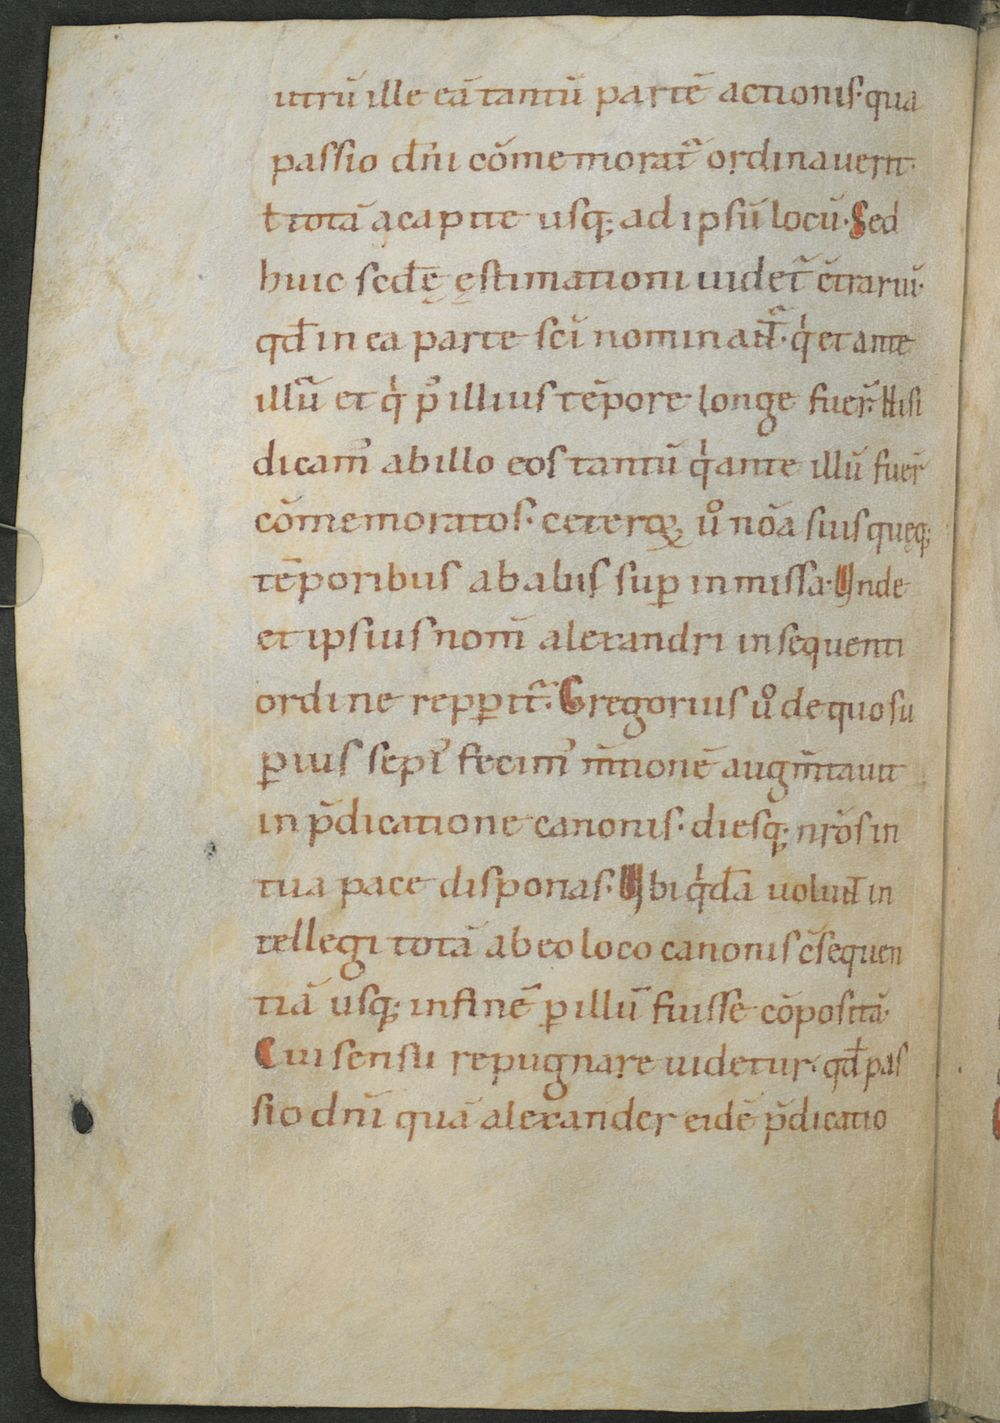 utrū ille eā tantū partē actionis· qua
passio dn̄i cōmemorat᷑ ordinauerit·
ł totā a capite usq; ad ipsū locū· Sed
huic secde̅ ęstimationi uidet᷑ c̄trariū·
qđ in ea parte sc̄i nominant᷑· qͥ et ante
illū et qͥ p᷒ illius tēpore longe fuer̄· Nisi
dicam᷒ ab illo eos tantū qͥ ante illū fuer̄
cōmemoratos· ceteroꝝ uͦ nōa suis queq;
tēporibus ab aliis suꝑ in missa· Unde
et ipsius nom̄ alexandri in sequenti
ordine repꝑit᷑· Gregorius uͦ de quo su
ꝑius sepi᷒ fecim᷒ m̄tionē augm̄tauit
in p̄dicatione canonis· diesq; nr̄os in
tua pace disponas· Ubi qͥdā uolunt in
tellegi totā ab eo loco canonis c̄sequen
tiā usq; in finē ꝑ illū fuisse cōpositā·
Cui sensu repugnare uidetur· qđ pas
sio dn̄i quā alexander eidē p̄dicatio